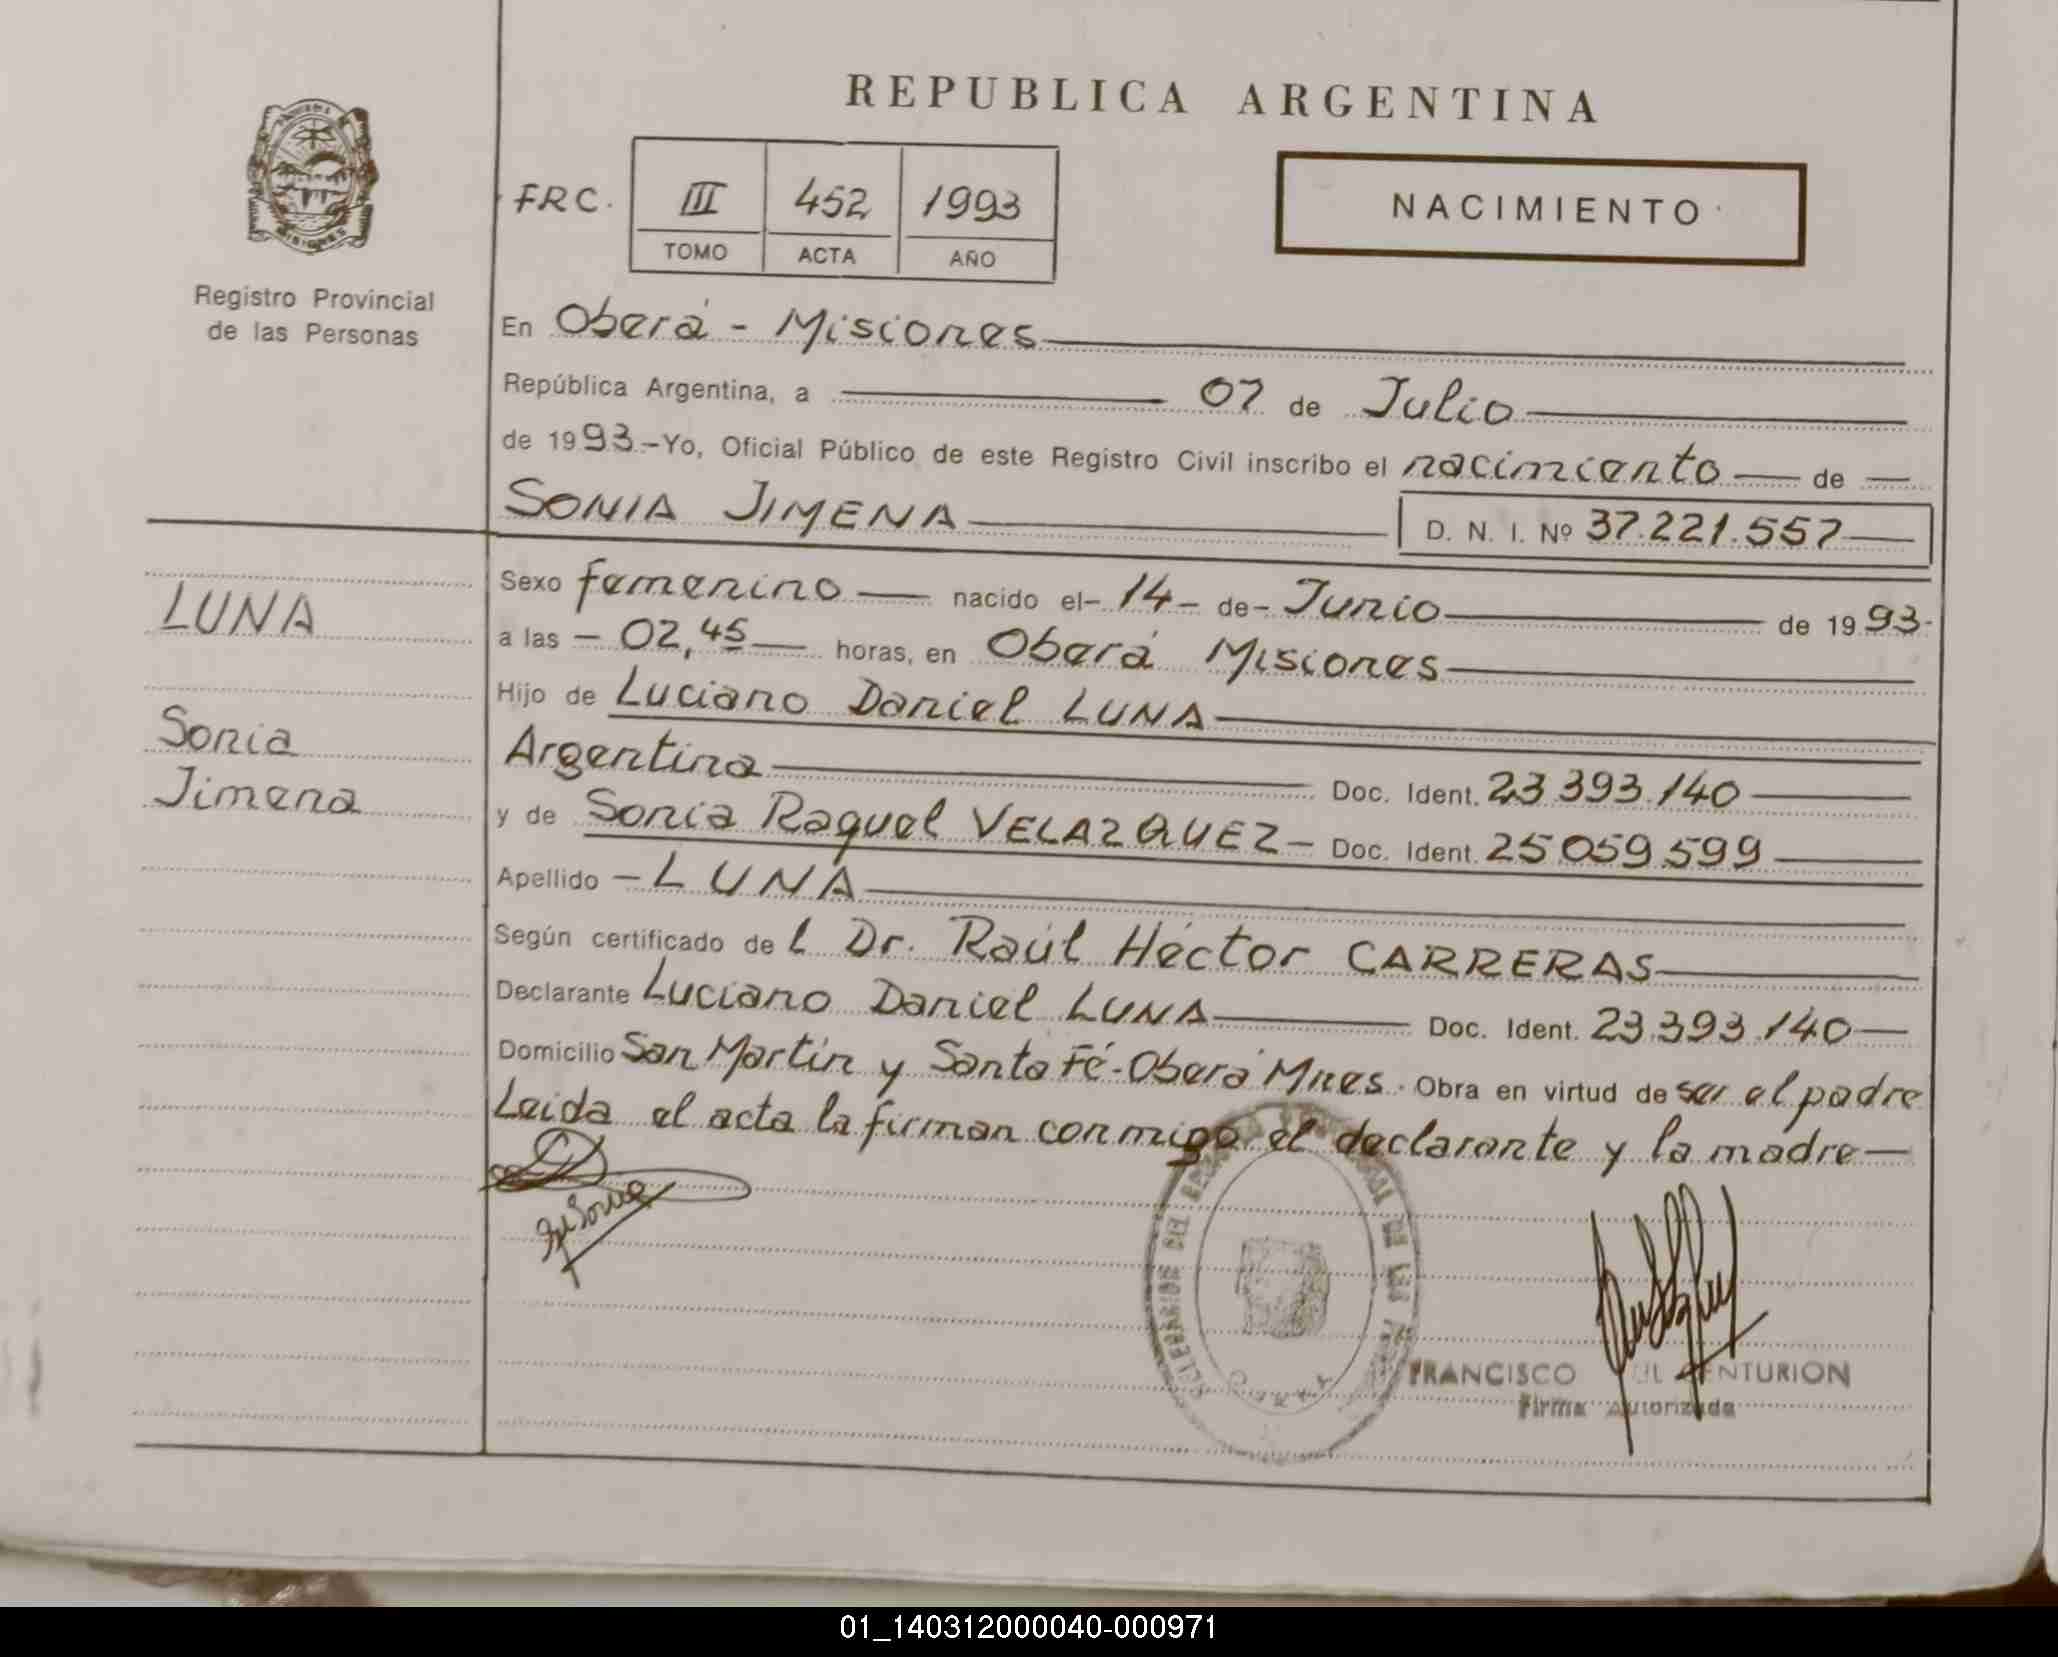 REPUBLICA ARGENTINA
MISIONES
Registro Provincial
de las Personas
FRC. III 452 1993
TOMO ACTA AÑO
NACIMIENTO
En Oberá - Misiones
República Argentina, a 07 de Julio
de 1993.-Yo, Oficial Público de este Registro Civil inscribo el nacimiento de
SONIA JIMENA D. N. I. Nº 37.221.557
LUNA
Sonia
Jimena
Sexo femenino nacido el- 14 - de- Junio de 1993-
a las - 02,45 horas, en Oberá Misiones
Hijo de Luciano Daniel LUNA
Argentina Doc. Ident. 23.393.140
y de Sonia Raquel VELAZQUEZ - Doc. Ident. 25.059.599
Apellido - LUNA
Según certificado del Dr. Raúl Héctor CARRERAS
Declarante Luciano Daniel LUNA Doc. Ident. 23.393.140
Domicilio San Martín y Santa Fé - Oberá Mnes. Obra en virtud de ser el padre
Leida el acta la firman conmigo el declarante y la madre
DEL
DE LAS
FRANCISCO CENTURION
Firma Autorizada
01_140312000040-000971